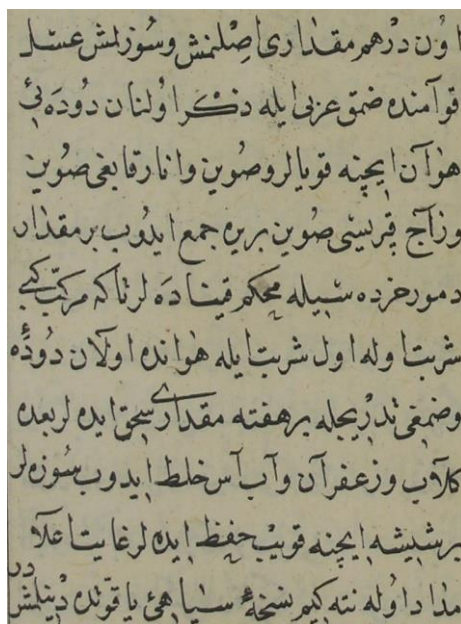 اون درهم مقداری اصلنمش وسوزلمش عسل
قوامنده ضمق عربی ایله ذکر اولنان دوده ئی
هوان ایچنه قویالر وصوین وانار قابغی صوین
وزاج قبریسی صوین بریره جمع ایدوب برمقدار
دمور خرده سیله محکم قیناده لر تاکه مرکب کبی
شربت اوله اول شربت ایله هوانده اولان دوده
وضمغی تدریجله برهفته مقداری سحق ایده لر بعده
کلاب وزعفران وآب آس خلط ایدوب سوزه لر
برشیشه ایچنه قویب حفظ ایده لر غایت اعلا
مداد اوله نته کیم نسخهٔ سیاهئ یاقوتده دینلمشدر